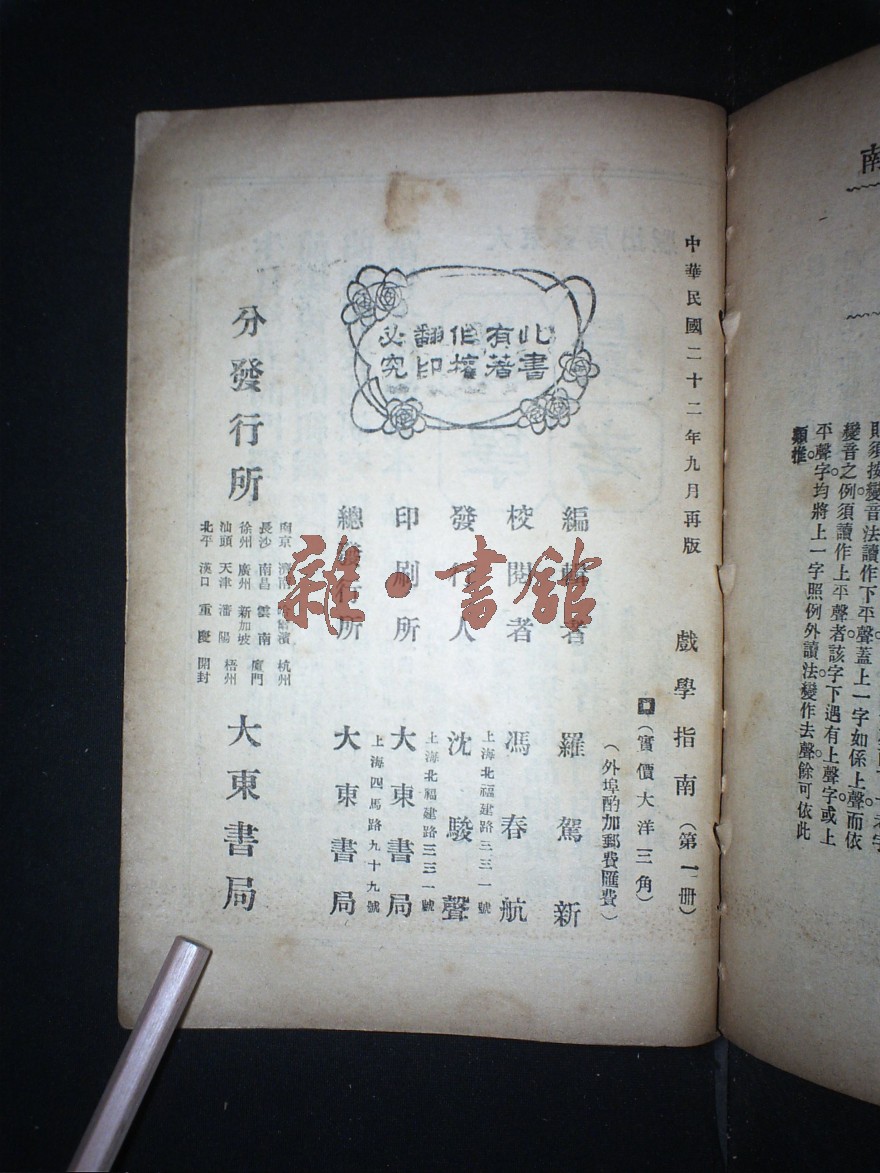 類推
平聲字均將上一字照例外讀法變作去聲餘可依此
變音之例須讀作上平聲者該字下遇有上聲字或上
則須按變音法讀作下平聲蓋上一字如係上聲而依
南
中華民國二十二年九月再版
戲學指南(第一册)
(實價大洋三角)
(外埠酌加郵費匯費)
此書有著作權翻印必究
編輯者 羅駕新
校閱者 馮春航
發行人 沈駿聲
上海北福建路三三一號
印刷所 大東書局
上海北福建路三三一號
總發行所 大東書局
上海四馬路九十九號
分發行所 大東書局
南京 濟南 哈爾濱 杭州
長沙 南昌 雲南 廈門
徐州 廣州 新加坡 梧州
汕頭 天津 瀋陽
北平 漢口 重慶 開封
雜·書館